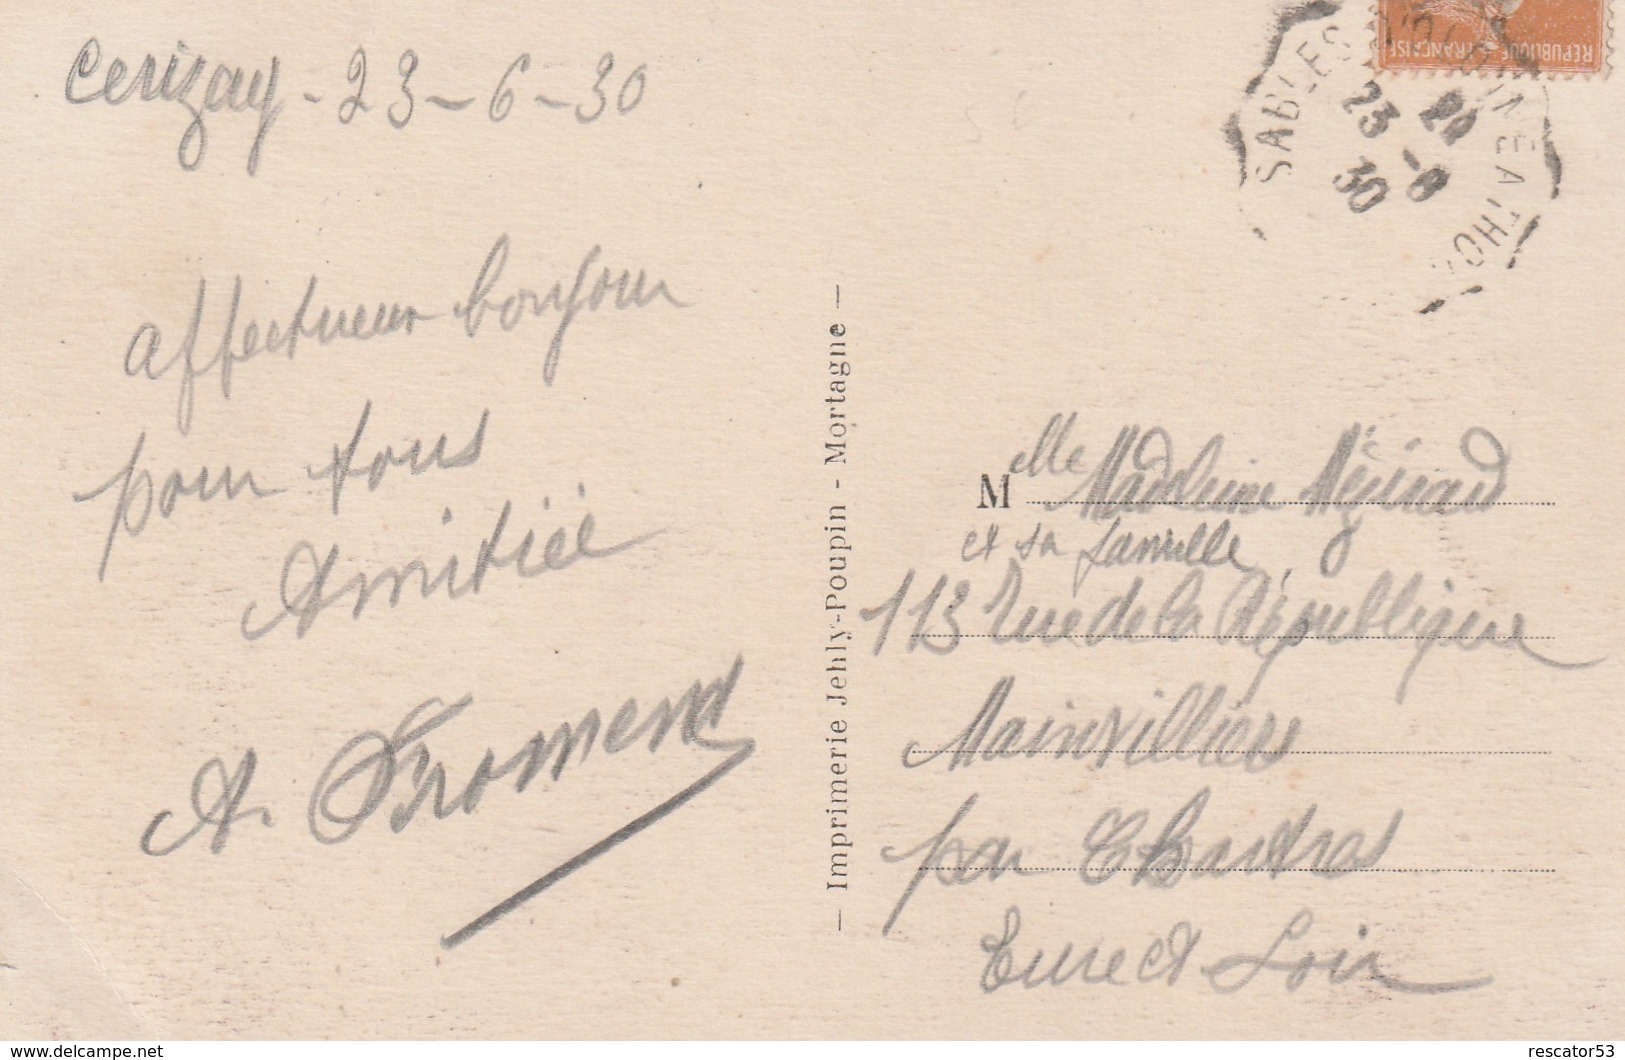 Cerizay - 23 - 6 - 30
Affectueux bonjour
pour tous
Amitiée
A. Froment
— Imprimerie Jehly-Poupin - Mortagne —
REPUBLIQUE FRANÇAISE
SABLES D'OLONNE A THO
23 -6
30
Melle Madeleine
et sa famille
113 rue de la République
Mainvilliers
par Chartres
Eure et Loir
www.delcampe.net
rescator53